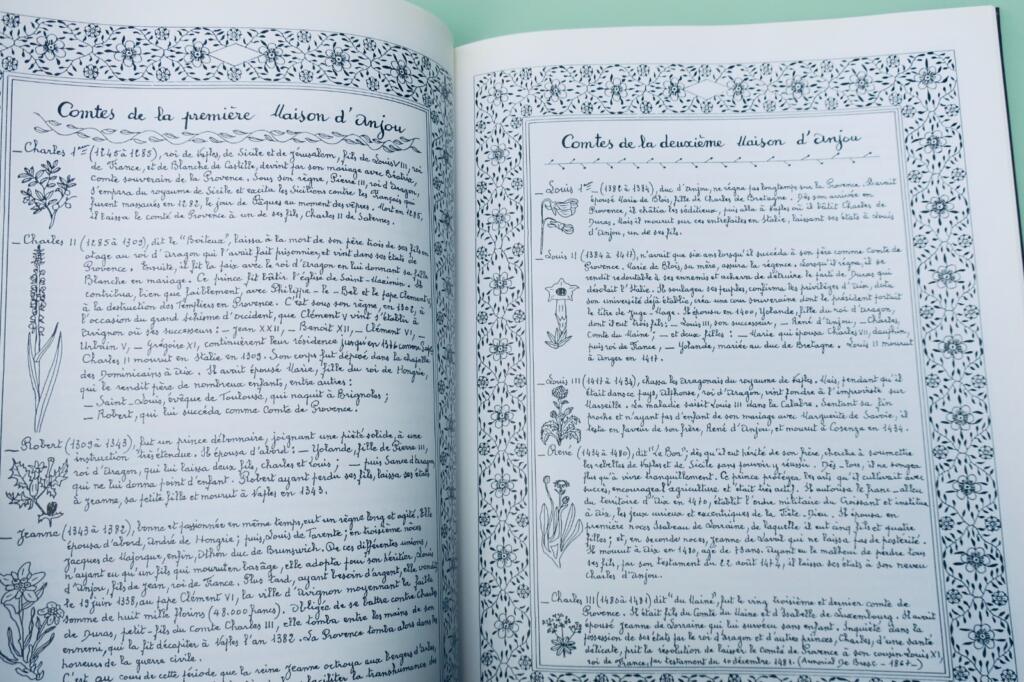 Comtes de la première Maison d'Anjou
_ Charles 1er (1245 à 1285), roi de Naples, de Sicile et de Jérusalem, fils de Louis VIII, roi
de France, et de Blanche de Castille, devint par son mariage avec Béatrix,
comte souverain de la Provence. Sous son règne, Pierre III, roi d'Aragon,
s'empara du royaume de Sicile et excita les Siciliens contre les Français qui
furent massacrés en 1282, le jour de Pâques au moment des vêpres. Mort en 1285,
il laissa le comté de Provence à un de ses fils, Charles II de Salernes.
_ Charles II (1285 à 1309), dit le "Boiteux", laissa à la mort de son père trois de ses fils en
otage au roi d'Aragon qui l'avait fait prisonnier, et vint dans ses états de
Provence. Ensuite, il fit la paix avec le roi d'Aragon en lui donnant sa fille
Blanche en mariage. Ce prince fit bâtir l'église de Saint-Maximin. Il
contribua, bien que faiblement, avec Philippe-le-Bel et le pape Clément V,
à la destruction des Templiers en Provence. C'est sous son règne, en 1302, à
l'occasion du grand schisme d'Occident, que Clément V vint s'établir à
Avignon où ses successeurs : _ Jean XXII, _ Benoît XII, _ Clément VI,
Urbain V, _ Grégoire XI, continuèrent leur résidence jusqu'en 1376
Charles II mourut en Italie en 1309. Son corps fut déposé dans la chapelle
des Dominicains à Aix. Il avait épousé Marie, fille du roi de Hongrie,
qui le rendit père de nombreux enfants, entre autres :
_ Saint-Louis, évêque de Toulouse, qui naquit à Brignoles ;
_ Robert, qui lui succéda comme Comte de Provence.
_ Robert (1309 à 1343), fut un prince débonnaire, joignant une piété solide, à une
instruction très étendue. Il épousa d'abord : _ Yolande, fille de Pierre III,
roi d'Aragon, qui lui laissa deux fils, charles et Louis ; _ puis Sance d'Aragon
qui ne lui donna point d'enfant. Robert ayant perdu ses fils, laissa ses états
à Jeanne, sa petite fille et mourut à Naples en 1343.
_ Jeanne (1343 à 1382), bonne et passionnée en même temps, eut un règne long et agité. Elle
épousa d'abord, André de Hongrie ; puis, Louis de Tarente ; en troisième noces
Jacques de Majorque, enfin, Othon duc de Brunswich. De ces différentes unions,
n'ayant eu qu'un fils qui mourut en bas âge, elle adopta pour son héritier, Louis
d'Anjou, fils de Jean, roi de France. Plus tard, ayant besoin d'argent, elle vendit
le 19 juin 1358, au pape Clément VI, la ville d'Avignon moyennant la faible
somme de huit mille florins (48.000 francs). Obligée de se battre contre Charles
de Duras, petit-fils du comte Charles III, elle tomba entre les mains de son
ennemi, qui la fit décapiter à Naples l'an 1382. La Provence tomba alors dans les
horreurs de la guerre civile.
C'est au cours de cette période que la reine Jeanne octroya aux bergers d'Arles,
faciliter la transhumance des
Comtes de la deuxième Maison d'Anjou
_ Louis 1er _ (1382 à 1384), duc d'Anjou, ne règne pas longtemps sur la Provence. Il avait
épousé Marie de Blois, fille de Charles de Bretagne. Dès son arrivée en
Provence, il châtia les séditieux, puis alla à Naples où il battit Charles de
Duras. Mais il mourut sur ces entrefaites en Italie, laissant ses états à Louis
d'Anjou, un de ses fils.
_ Louis II (1384 à 1417), n'avait que six ans lorsqu'il succéda à son père comme Comte de
Provence. Marie de Blois, sa mère, assura la régence. Lorsqu'il règne, il se
rendit redoutable à ses ennemis et acheva de détruire le parti de Duras qui
désolait l'Italie. Il soulagea ses peuples, confirma les privilèges d'Aix, dota
son université déjà établie, créa une cour souveraine dont le président portait
le titre de Juge-Mage. Il épousa en 1400, Yolande, fille du roi d'Aragon,
dont il eut trois fils : _ Louis III, son successeur, _ René d'Anjou, _ Charles,
Comte du Maine ; _ et deux filles : _ Marie qui épousa Charles VII, dauphin,
puis roi de France, _ Yolande, mariée au duc de Bretagne. Louis II mourut
à Angers en 1417.
_ Louis III (1417 à 1434), chassa les Aragonais du royaume de Naples. Mais, pendant qu'il
était dans ce pays, Alphonse, roi d'Aragon, vint fondre à l'improviste sur
Marseille. La maladie saisit Louis III dans la Calabre. Sentant sa fin
proche et n'ayant pas d'enfant de son mariage avec Marguerite de Savoie, il
testa en faveur de son frère, René d'Anjou, et mourut à Cosenza en 1434.
_ René (1434 à 1480), dit "Le Bon", dès qu'il eut hérité de son frère, chercha à soumettre
les rebelles de Naples et de Sicile sans pouvoir y réussir. Dès-lors, il ne songea
plus qu'à vivre tranquillement. Ce prince protégea les arts qu'il cultivait avec
succès, encouragea l'agriculture et était très actif. Il autorisa le franc-alleu
du territoire d'Aix en 1410, établit l'ordre militaire du Croissant et institua
à Aix, les jeux curieux et excentriques de la Fête-Dieu. Il épousa en
première noces Isabeau de Lorraine, de laquelle il eut cinq fils et quatre
filles ; et, en seconde noces, Jeanne de Laval qui ne laissa pas de postérité.
Il mourut à Aix en 1480, âgé de 73 ans. Ayant eu le malheur de perdre tous
ses fils, par son testament du 22 août 1474, il laissa ses états à son neveu
Charles d'Anjou.
_ Charles III (1480 à 1481) dit "du Maine", fut le vingt troisième et dernier comte de
Provence. Il était fils du Comte du Maine et d'Isabelle de Luxembourg. Il avait
épousé Jeanne de Lorraine qui lui survécu sans enfant. Inquiété dans la
possession de ses états par le roi d'Aragon et d'autres princes, Charles, d'une santé
délicate, prit la résolution de laisser le Comté de Provence à son cousin Louis XI,
roi de France, par testament du 10 décembre 1481. (Armorial De Bresc. - 1867-)